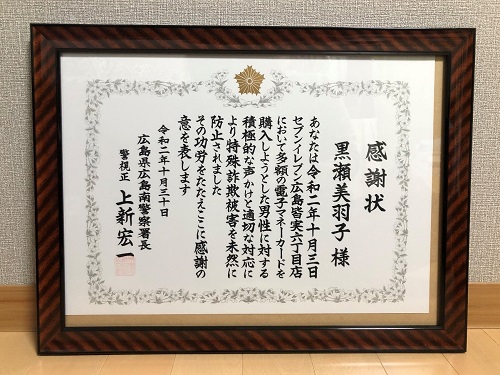 感謝状
黒瀬美羽子 様
あなたは令和二年十月三日
セブンイレブン広島皆実六丁目店
において多額の電子マネーカードを
購入しようとした男性に対する
積極的な声かけと適切な対応に
より特殊詐欺被害を未然に
防止されました
その功労をたたえここに感謝の
意を表します
令和二年十月三十日
広島県広島南警察署長
警視正 上新宏一